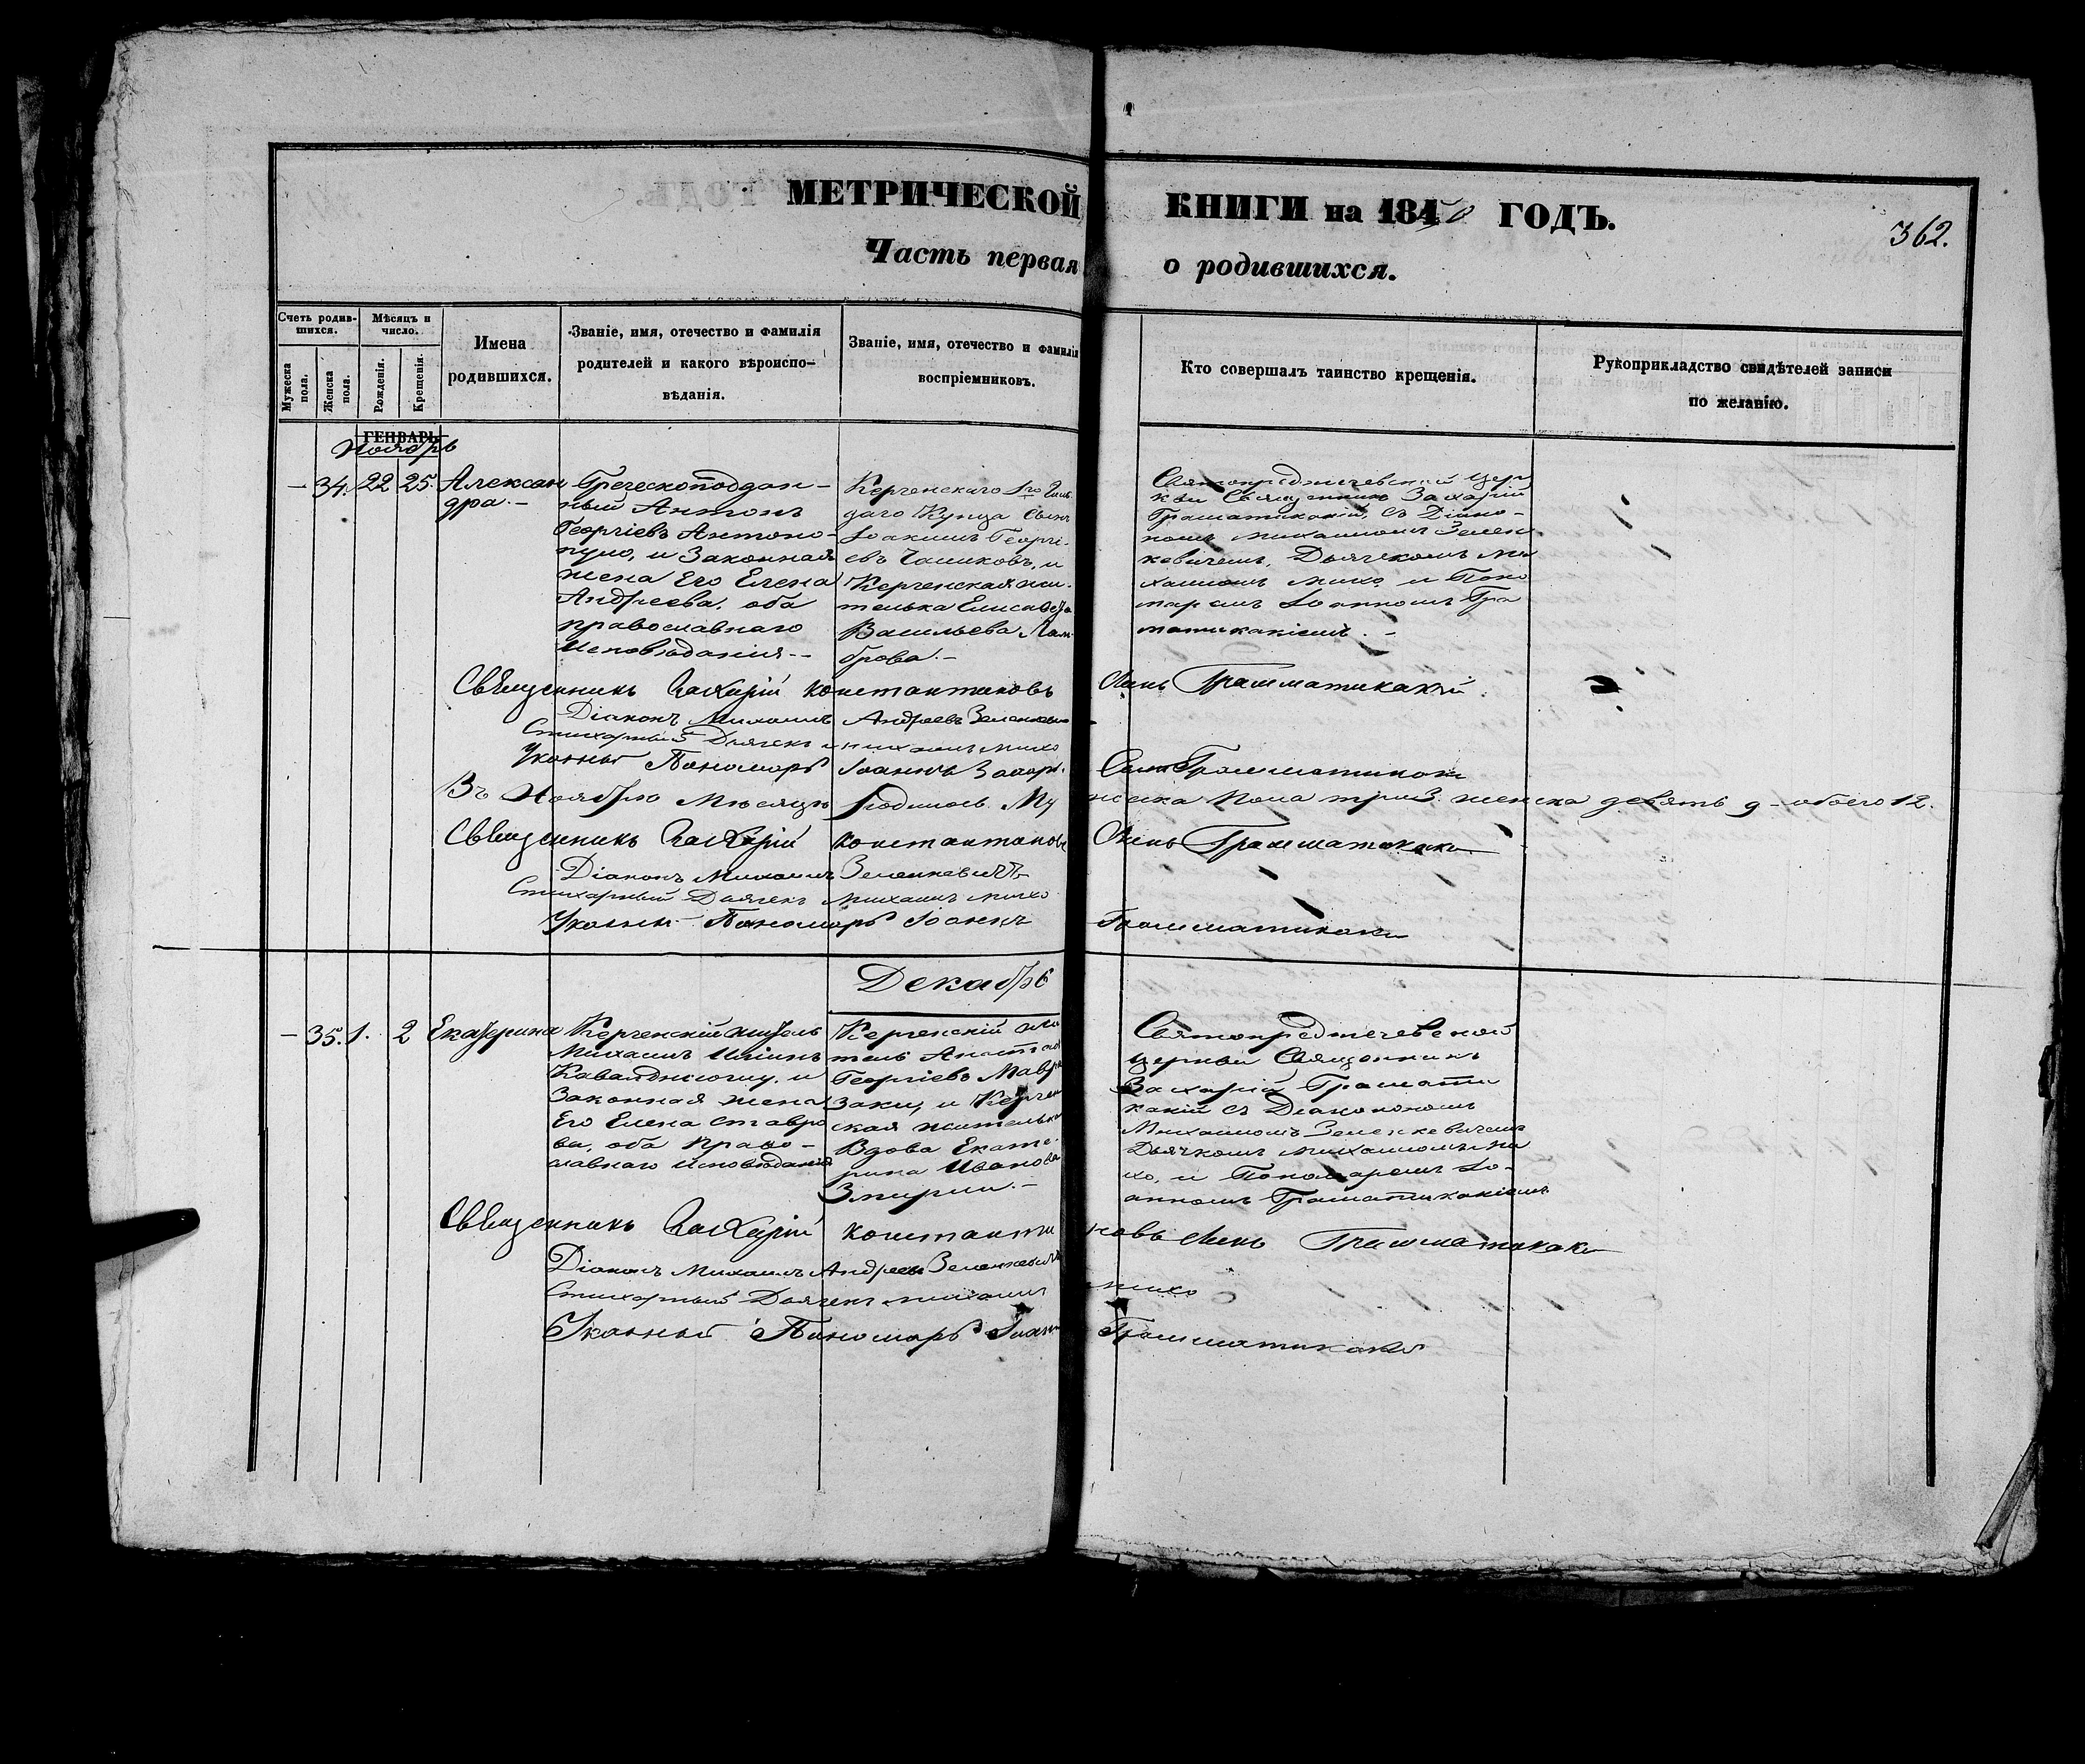 МЕТРИЧЕСКОЙ КНИГИ на 1850 ГОДЪ.
362.
Часть первая о родившихся.
Счетъ родившихся.
Мужеска пола.
Женска пола.
Мѣсяцъ и число.
Рожденія.
Крещенія.
Имена родившихся.
Званіе, имя, отечество и фамилія
родителей и какого вѣроиспо-
вѣданія.
Званіе, имя, отечество и фамилія
воспріемниковъ.
Кто совершалъ таинство крещенія.
Рукоприкладство свидѣтелей записи
по желанію.
ГЕНВАРЬ
Ноябрь
— 34. 22 25.
Алексан
дра. —
Греческоподдан-
ный Антонъ
Георгіевъ Антоно-
пуло, и Законная
жена Его Елена
Андреева, оба
православнаго
Исповѣданія --
Керченскаго 1го Гиль
даго Купца Сынъ
Іоакимъ Георгі-
евъ Чашковъ, и
Керченская жи-
телька Елисавета
Васильева Лам-
брова. —
Святопредтечевской Цер
кви Священникъ Захарій
Граматикакій, съ Діако-
номъ Михаиломъ Зелен
кевичемъ, Дьячкомъ Ми
хаиломъ Михо и Поно
маремъ Іоанномъ Гра
матикакіемъ. —
Священникъ Захарій Константиновъ Сынъ Грамматикакій.
Діаконъ Михаилъ Андреевъ Зеленкевичъ
Стихарный Дьячекъ Михаилъ Михо
Указный Пономарь Іоаннъ Захарі. Сынъ Грамматикаки
Въ Ноябрѣ Мѣсяцѣ родилось Мужеска Пола три 3. женска девять 9 - обоего 12.
Священникъ Захарій Константиновъ Сынъ Грамматикаки
Діаконъ Михаилъ Зеленкевичъ
Стихарный Дьячекъ Михаилъ Михо
Указный Пономарь Іоаннъ Грамматикаки
Декабрь
— 35. 1. 2
Екатерина
Керченскій житель
Михаилъ Иліинъ
Каваджиогму, и
Законная жена
Его Елена Ставро
ва, оба Право-
славнаго Исповѣданія
Керченскій жи
тель
Георгіевъ Мавро
заки, и Керчен
ская жителька
Вдова Екате-
рина Иванова
Змирли. —
Святопредтечевской
Церкви Священникъ
Захарій Грамати
какій съ Діакономъ
Михаиломъ Зеленкевичемъ
Дьячкомъ Михаиломъ Ми
хо, и Пономаремъ Іо-
анномъ Граматикакіемъ
Священникъ Захарій Константиновъ Сынъ Грамматикаки
Діаконъ Михаилъ Андреевъ Зеленкевичъ
Стихарный Дьячекъ Михаилъ Михо
Указный Пономарь Іоаннъ Грамматикаки